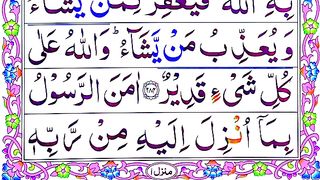 بِهِ اللّٰهُ ؕ فَيَغْفِرُ لِمَنْ يَّشَآءُ
وَيُعَذِّبُ مَنْ يَّشَآءُ ؕ وَاللّٰهُ عَلٰى
كُلِّ شَىْءٍ قَدِيْرٌ ﴿۲۸۴﴾ اٰمَنَ الرَّسُوْلُ
بِمَآ اُنْزِلَ اِلَيْهِ مِنْ رَّبِّهٖ
منزل ۱